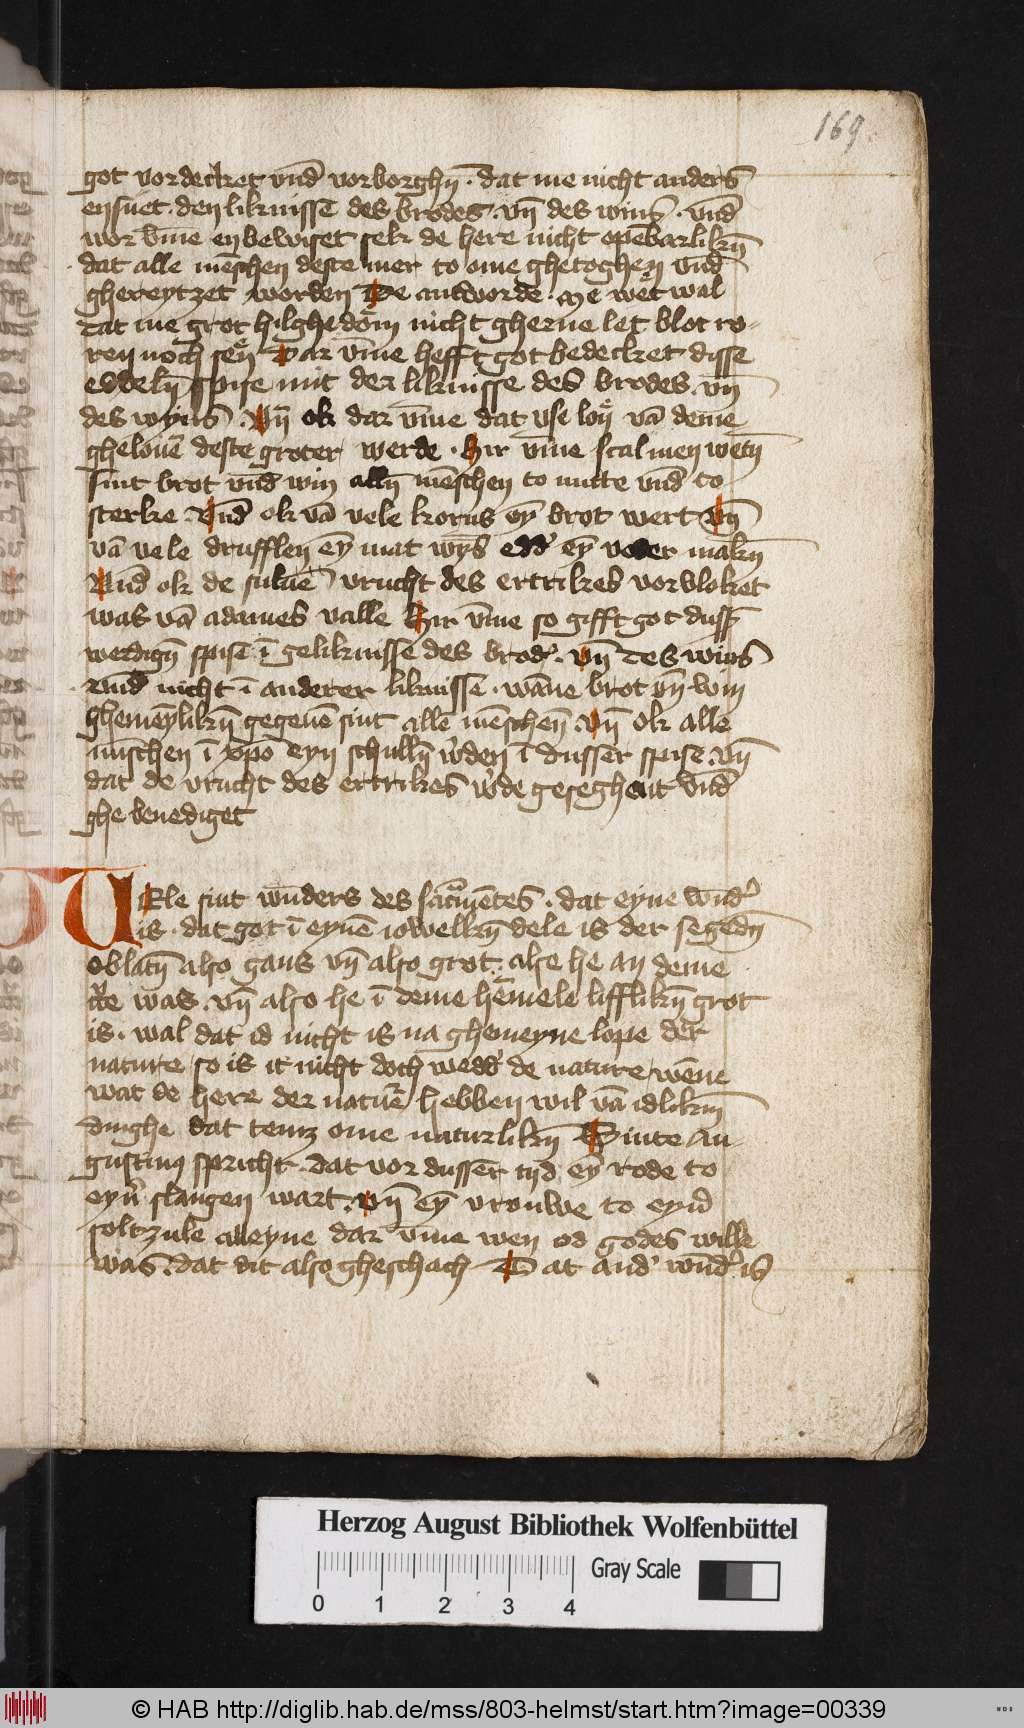 169
got vordecket vnd̄ vorborghn̄ · dat me nicht anders
ensuet · den liknisse des brodes · vn̄ des wins · vnd̄
wor vm̄e en bewiset sek de here nicht opēbarlikn̄
dat alle mēschen deste mer to ome ghetoghen vnd̄
ghereytzet worden De antworde · Me wet wal
dat me grot hilghedom nicht gherne let blot ro-
ren noch sen Dar vm̄e hefft got bedecket disse
eddeln̄ spise mit der liknisse des brodes vn̄
des wyns · Vn̄ ok dar vm̄e dat vse lon vā deme
ghelouē deste groter werde · Hir vm̄e scal men wetn̄
sint brot vnd̄ win alln̄ mēschen to nutte vnd̄ to
sterke · Vnd̄ ok vā vele korns ey̅ brot wert Vn̄
vā vele drufflen ey̅ mat wy̅s edd' ey̅ voder makn̄
Vnd̄ ok de suluē vrucht des ertrikes vorvloket
was vā adames valle Hir vm̄e so gifft got duss̄
werdign̄ spise ī geliknisse des brod' · Vn̄ des wins
vnd̄ nicht ī anderer liknisse · wāne brot vn̄ win
ghemēylikn̄ gegeuē sint allē mēschen Vn̄ ok alle
mīschen ī xp̄o eyn schulln̄ w'den ī dusser spise · vn̄
dat de vrucht des ertrikes w'de geseghent vnd̄
ghebenediget
VEle sint wnders des sacmētes · dat eyne wnd'
is · dat got ī eynē iowelkn̄ dele is der segedn̄
oblatn̄ also gans vn̄ also grot · alse he an deme
crce was · vn̄ also he ī deme hēmele lifflikn̄ grot
is · wal dat id nicht is na ghemeyne lope der
nature so is it nicht doch wedd' de nature wēne
wat de here der naturē hebben wil vā idlikm̄
dinghe dat temz ome naturlikn̄ Sinte au-
gustinus spricht · dat vor dusser tijd ey̅ rode to
eyn' slangen wart · Vn̄ ey̅ vrouwe to eyn'
soltzule alleyne dar vm̄e wen od godes wille
was · dat dit also gheschach Dat and' wnd' is
Herzog August Bibliothek Wolfenbüttel
Gray Scale
0 1 2 3 4
© HAB http://diglib.hab.de/mss/803-helmst/start.htm?image=00339